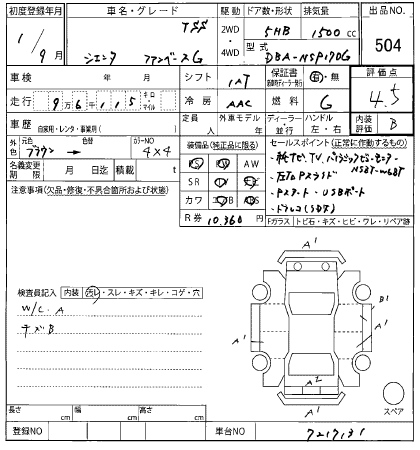 初度登録年月 車名・グレード 駆動 ドア数・形状 排気量 出品NO.
1/9月 シエンタ ファンベースG 2WD・4WD 5HB 1500cc 504
型式 DBA-NSP170G
車検 年 月 シフト IAT 保証書 有・無 評価点
走行 9万6千115 キロ・マイル 冷房 AAC 燃料 G 4.5
車歴 自家用・レンタ・事業用( ) 定員 人 外車モデル 年 ディーラー・並行 ハンドル 左・右 内装 B
外色 元色 ブラウン 色替 カラーNO 4X4
名義変更期限 月 日迄 積載 t
装備品(純正品に限る) セールスポイント(正常に作動するもの)
PS PW AW
SR
カワ エアB ABS
R券 10,360円
NSZT-W68T
・左右Pスライド
・Pスタート ・USBポート
・ドラレコ
注意事項(欠品・修復・不具合箇所および状態)
Fガラス トビ石・キズ・ヒビ・ワレ・リペア跡
検査員記入 内装 汚レ・スレ・キズ・キレ・コゲ・穴
W/C.A
キズB
A1
B1
A1
A1
A2
A1
スペア
長さ cm 幅 cm 高さ cm
登録NO 車台NO 7217131